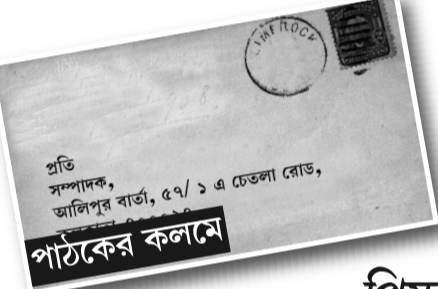 LIMEROCK
প্রতি
সম্পাদক,
আলিপুর বার্তা, ৫৭/ ১ এ চেতলা রোড,
পাঠকের কলমে